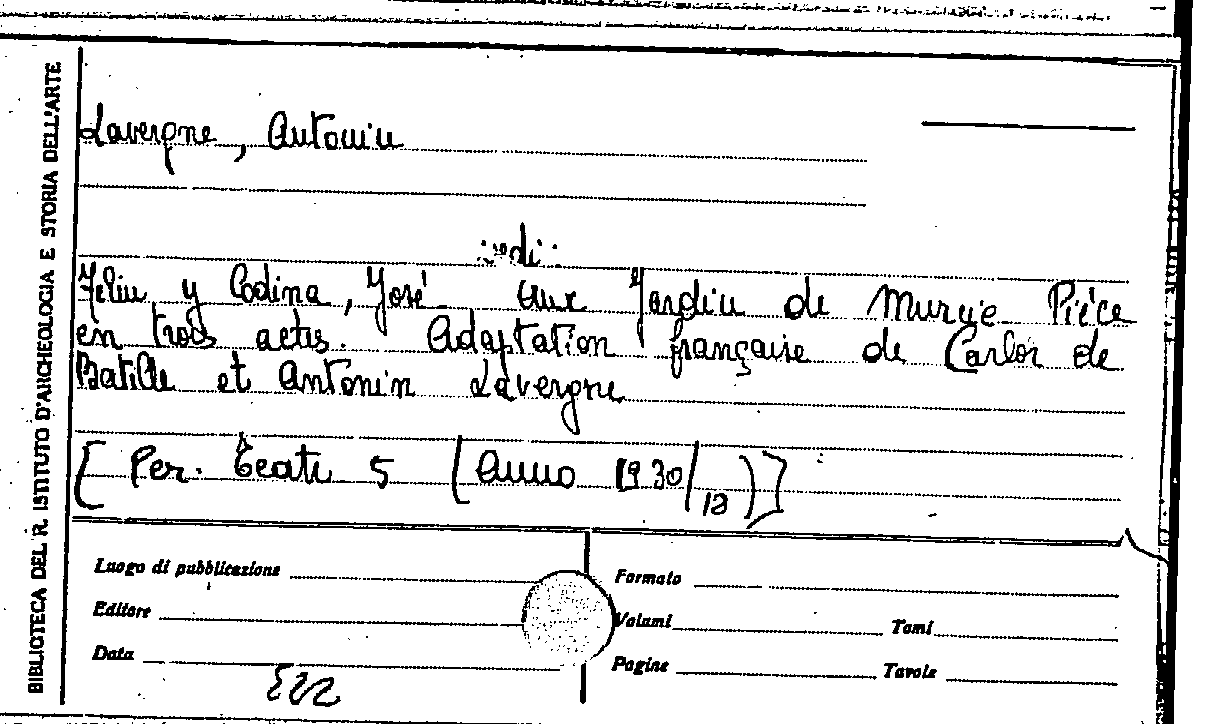 BIBLIOTECA DEL R. ISTITUTO D'ARCHEOLOGIA E STORIA DELL'ARTE
Lavergne, Antonin
vedi:
Feliu y Codina, José Aux Jardin de Murcie Pièce
en trois actes. Adaptation française de Carlos de
Batlle et Antonin Lavergne
[Per. Teatr 5 (Anno 1930/12)]
Luogo di pubblicazione
Formato
Editore
Volumi Tomi
Data
Pagine Tavole